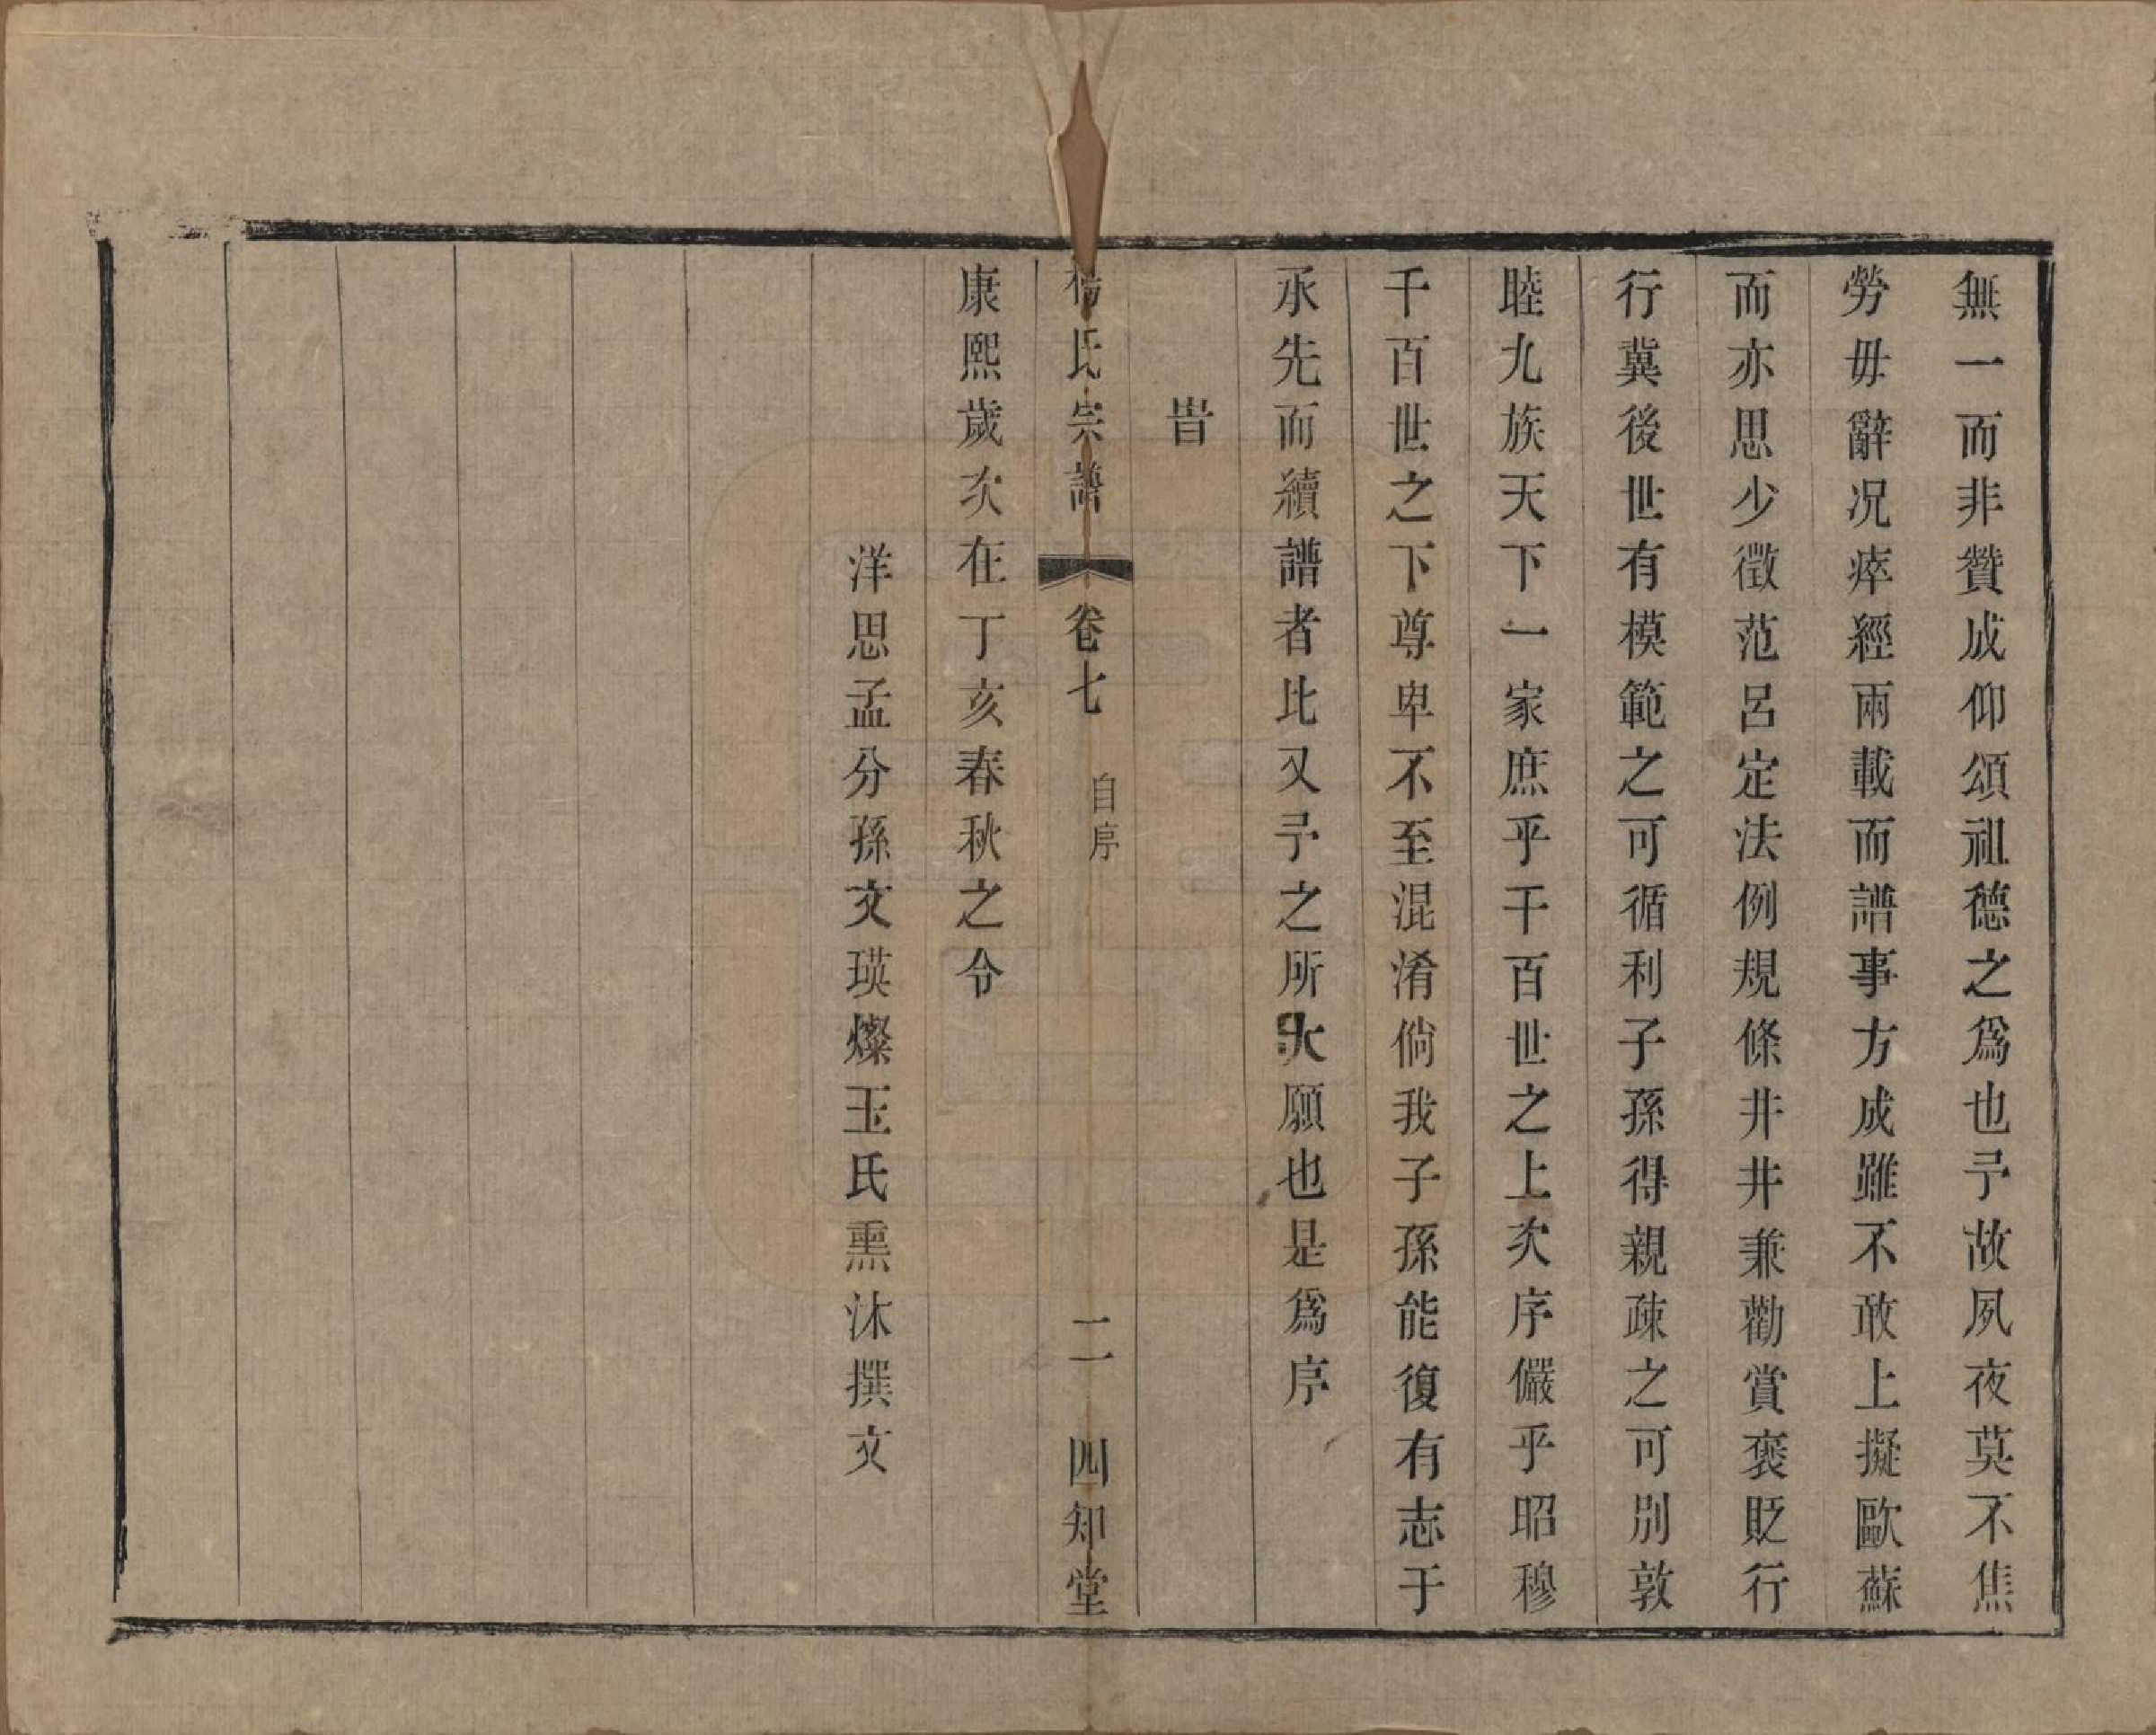 無一而非贊成仰頌祖德之爲也予故夙夜莫不焦
勞毋辭况瘁經兩載而譜事方成雖不敢上擬歐蘇
而亦思少徵范呂定法例規條井井兼勸賞褒貶行
行冀後世有模範之可循利子孫得親疎之可別敦
睦九族天下一家庶乎千百世之上次序儼乎昭穆
千百世之下尊卑不至混淆倘我子孫能復有志于
承先而續譜者比又予之所大願也是爲序
旹
楊氏宗譜 卷七 自序 二 四知堂
康熙歲次在丁亥春秋之令
洋思孟分孫文瑛燦玉氏熏沐撰文